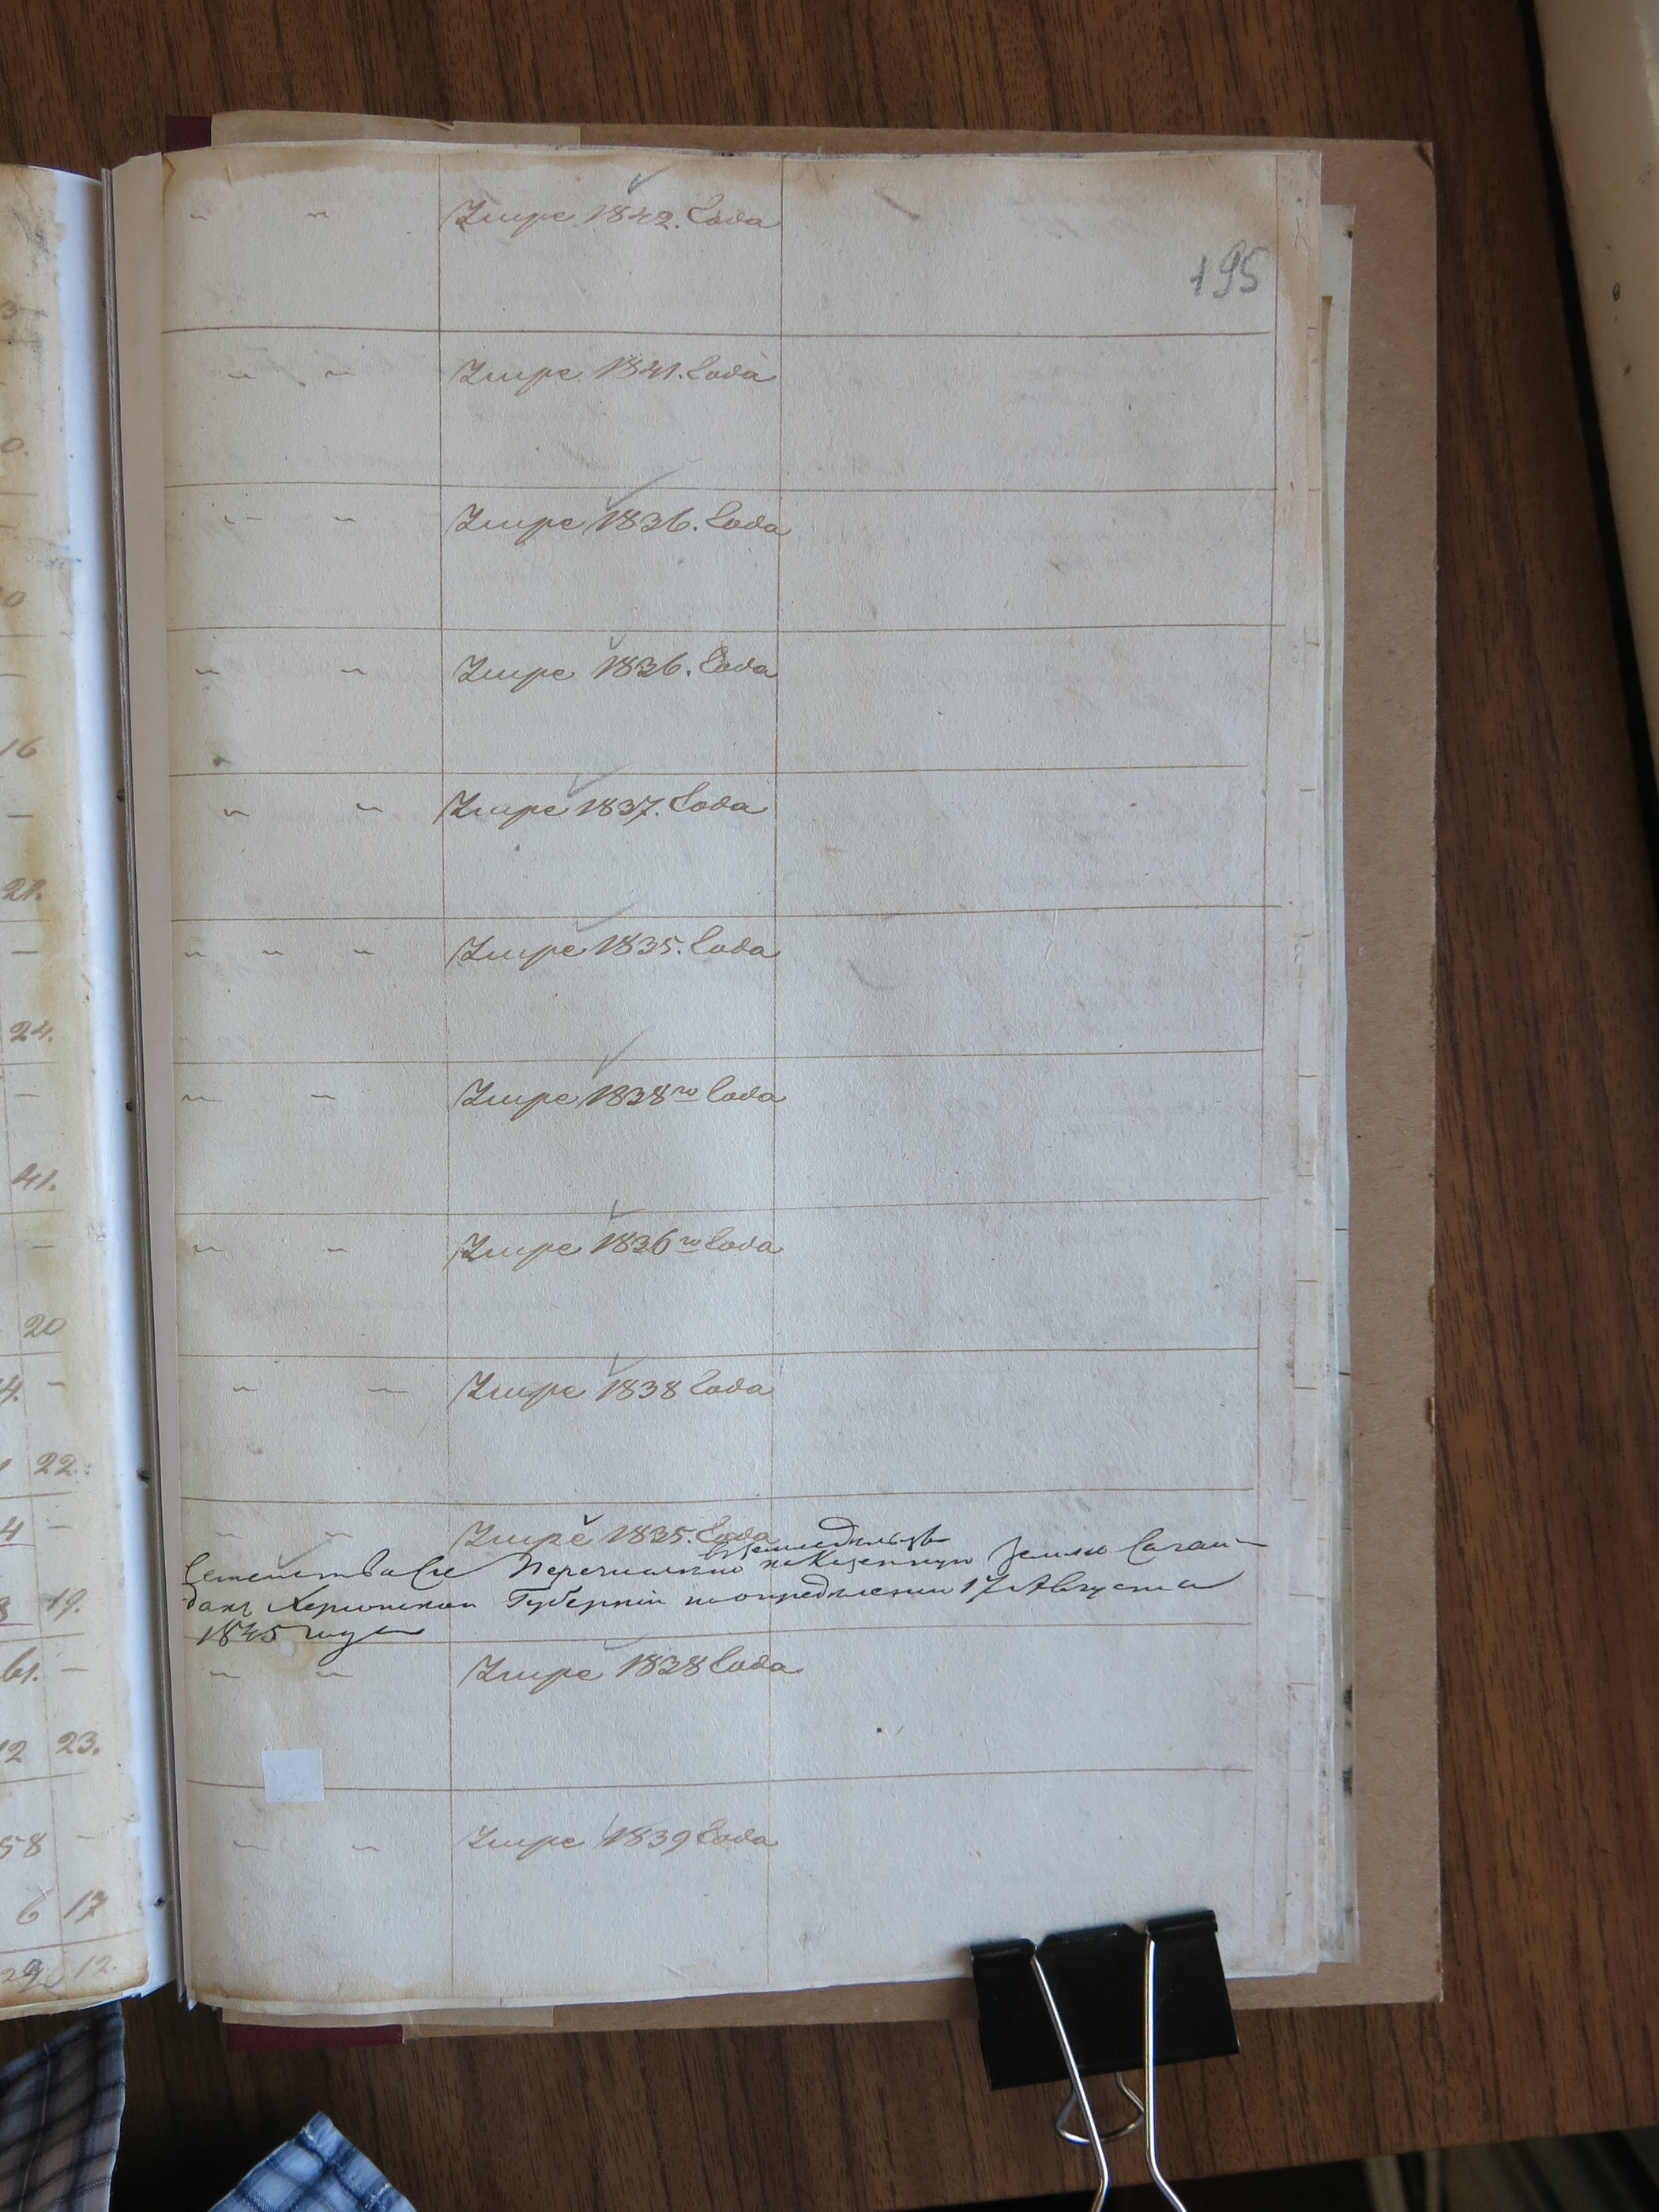 16
21.
24.
41.
20
22.
4
19.
61.
12 23.
58
6 17
29 12.
195
Умре 1842. Года
Умре 1841. Года
Умре 1836. Года
Умре 1836. Года
Умре 1837. Года
Умре 1835. Года
Умре 1838го Года
Умре 1836го Года
Умре 1838 Года
Умре 1835. Года
въ земледельцы
Семейство Сіе Перечислено на Казенную Землю Сагай-
дакъ Херсонской Губерніи по определенію 17 Августа
1845 года
Умре 1838 Года
Умре 1839 Года